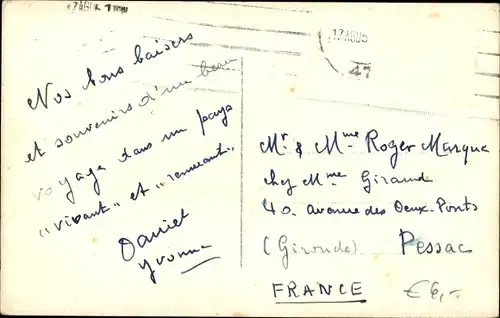 17AGO5
47
Nos bons baisers
et souvenirs d'un beau
voyage dans un pays
"vivant" et "remuant"
Daniel
Yvonne
Mr & Mme Roger Marque
chez Mme Giraud
40. avenue des Deux-Ponts
(Gironde) Pessac
FRANCE
€6,-